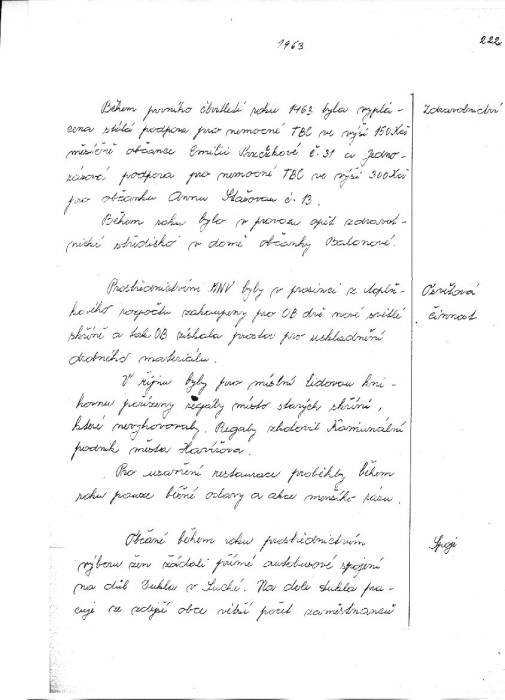 1963
222
Během prvního čtvrtletí roku 1963 byla vyplá-
cena stálá podpora pro nemocné TBC ve výši 150 Kčs
měsíčně občance Emilii č. 31 a jedno-
rázová podpora pro nemocné TBC ve výši 300 Kčs
pro občanku Annu č. 13.
Během roku bylo v provozu opět zdravot-
nické středisko v domě občanky Balonové.
Zdravotnictví
Prostřednictvím MNV byly v prosinci z doplň-
kového rozpočtu zakoupeny pro OB dvě nové světlé
skříně a tak OB získala prostor pro uskladnění
drobného materiálu.
Osvětová
činnost
V říjnu byly pro místní lidovou kni-
hovnu pořízeny regály místo starých skříní,
které nevyhovovaly. Regály zhotovil Komunální
podnik města Havířova.
Pro uzavření restaurace proběhly během
roku pouze běžné oslavy a akce menšího rázu.
Občané během roku prostřednictvím
výboru žen žádali přímé autobusové spojení
na důl Dukla v Suché. Na dole Dukla pra-
cuje ze zdejší obce větší počet zaměstnanců
Spoje